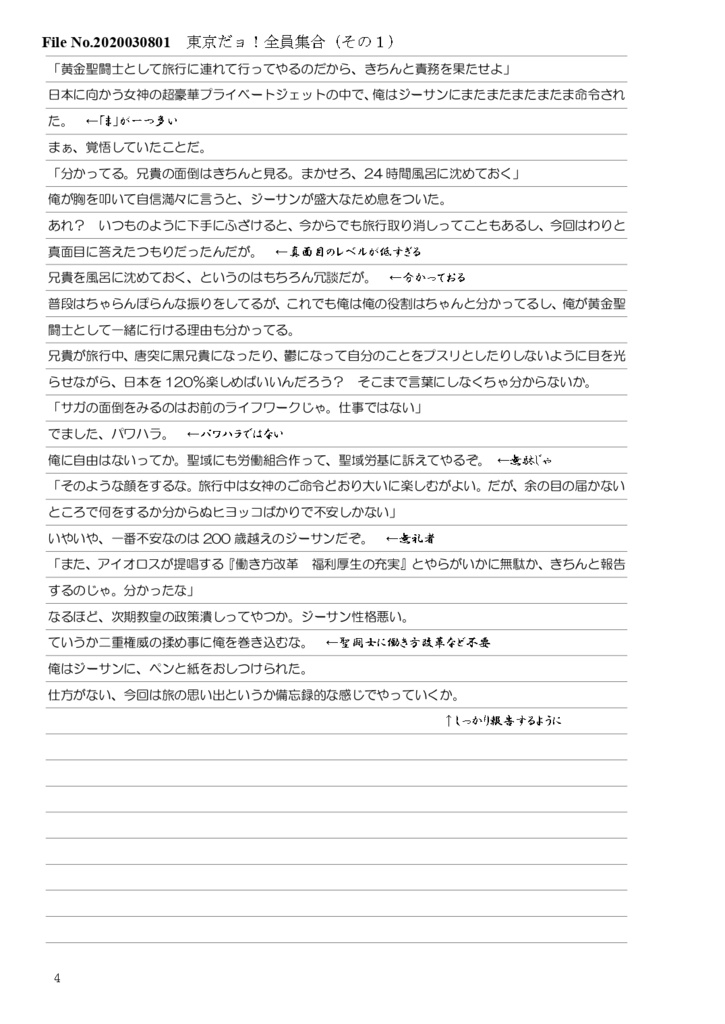 File No.2020030801　東京だョ！全員集合（その１）
「黄金聖闘士として旅行に連れて行ってやるのだから、きちんと責務を果たせよ」
日本に向かう女神の超豪華プライベートジェットの中で、俺はジーサンにまたまたまたまたま命令され
た。　←「ま」が一つ多い
まぁ、覚悟していたことだ。
「分かってる。兄貴の面倒はきちんと見る。まかせろ、24時間風呂に沈めておく」
俺が胸を叩いて自信満々に言うと、ジーサンが盛大なため息をついた。
あれ？　いつものように下手にふざけると、今からでも旅行取り消しってこともあるし、今回はわりと
真面目に答えたつもりだったんだが。　←真面目のレベルが低すぎる
兄貴を風呂に沈めておく、というのはもちろん冗談だが。　←分かっておる
普段はちゃらんぽらんな振りをしてるが、これでも俺は俺の役割はちゃんと分かってるし、俺が黄金聖
闘士として一緒に行ける理由も分かってる。
兄貴が旅行中、唐突に黒兄貴になったり、鬱になって自分のことをプスリとしたりしないように目を光
らせながら、日本を120％楽しめばいいんだろう？　そこまで言葉にしなくちゃ分からないか。
「サガの面倒をみるのはお前のライフワークじゃ。仕事ではない」
でました、パワハラ。　←パワハラではない
俺に自由はないってか。聖域にも労働組合作って、聖域労基に訴えてやるぞ。　←無駄じゃ
「そのような顔をするな。旅行中は女神のご命令どおり大いに楽しむがよい。だが、余の目の届かない
ところで何をするか分からぬヒヨッコばかりで不安しかない」
いやいや、一番不安なのは200歳越えのジーサンだぞ。　←無礼者
「また、アイオロスが提唱する『働き方改革　福利厚生の充実』とやらがいかに無駄か、きちんと報告
するのじゃ。分かったな」
なるほど、次期教皇の政策潰しってやつか。ジーサン性格悪い。
ていうか二重権威の揉め事に俺を巻き込むな。　←聖闘士に働き方改革など不要
俺はジーサンに、ペンと紙をおしつけられた。
仕方がない、今回は旅の思い出というか備忘録的な感じでやっていくか。
↑しっかり報告するように
4